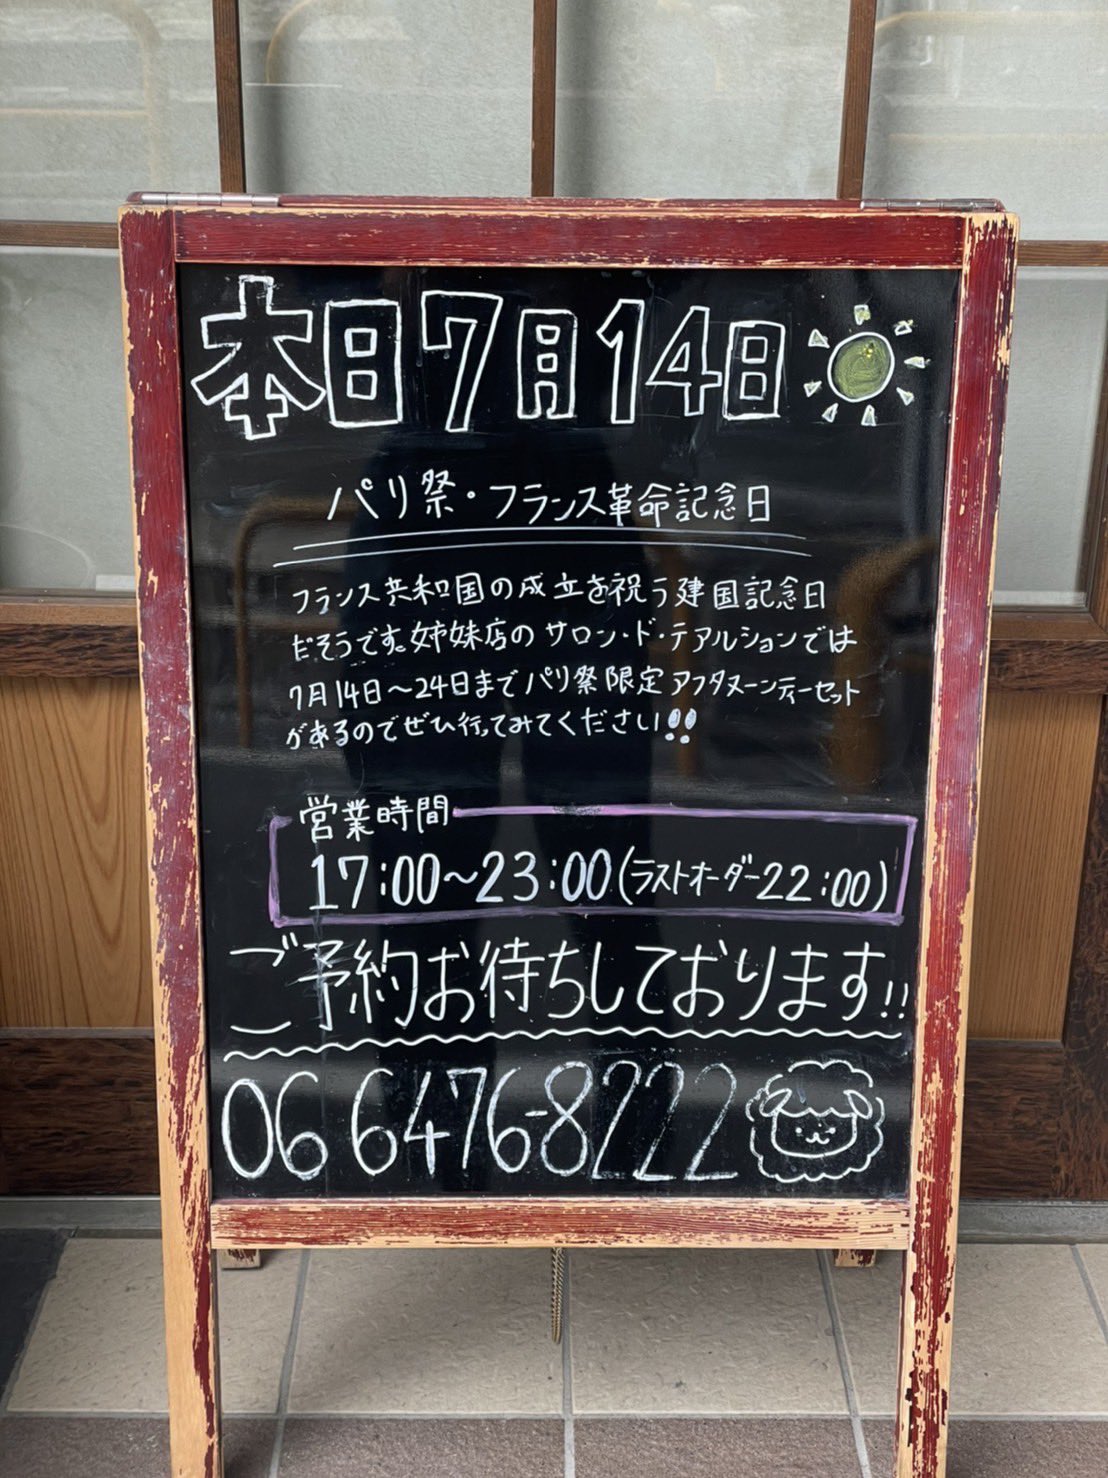 本日7月14日
パリ祭・フランス革命記念日
フランス共和国の成立を祝う建国記念日
だそうです。姉妹店のサロン・ド・テアルションでは
7月14日〜24日までパリ祭限定アフタヌーンティーセット
があるのでぜひ行ってみてください!!
営業時間
17:00〜23:00(ラストオーダー22:00)
ご予約お待ちしております!!
06 6476-8222